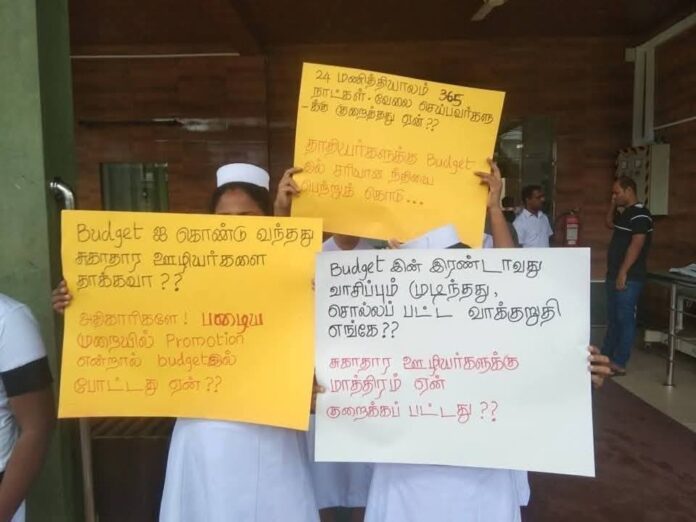 24 மணித்தியாலம் 365
நாட்கள். வேலை செய்பவர்களு
-க்கு குறைத்தது ஏன்??
தாதியர்களுக்கு Budget
இல் சரியான நீதியை
பெற்றுக் கொடு...
Budget ஐ கொண்டு வந்தது
சுகாதார ஊழியர்களை
தாக்கவா ??
அதிகாரிகளே! பழைய
முறையில் Promotion
என்றால் budgetஇல்
போட்டது ஏன்??
Budget இன் இரண்டாவது
வாசிப்பும் முடிந்தது,
சொல்லப் பட்ட வாக்குறுதி
எங்கே??
சுகாதார ஊழியர்களுக்கு
மாத்திரம் ஏன்
குறைக்கப் பட்டது ??